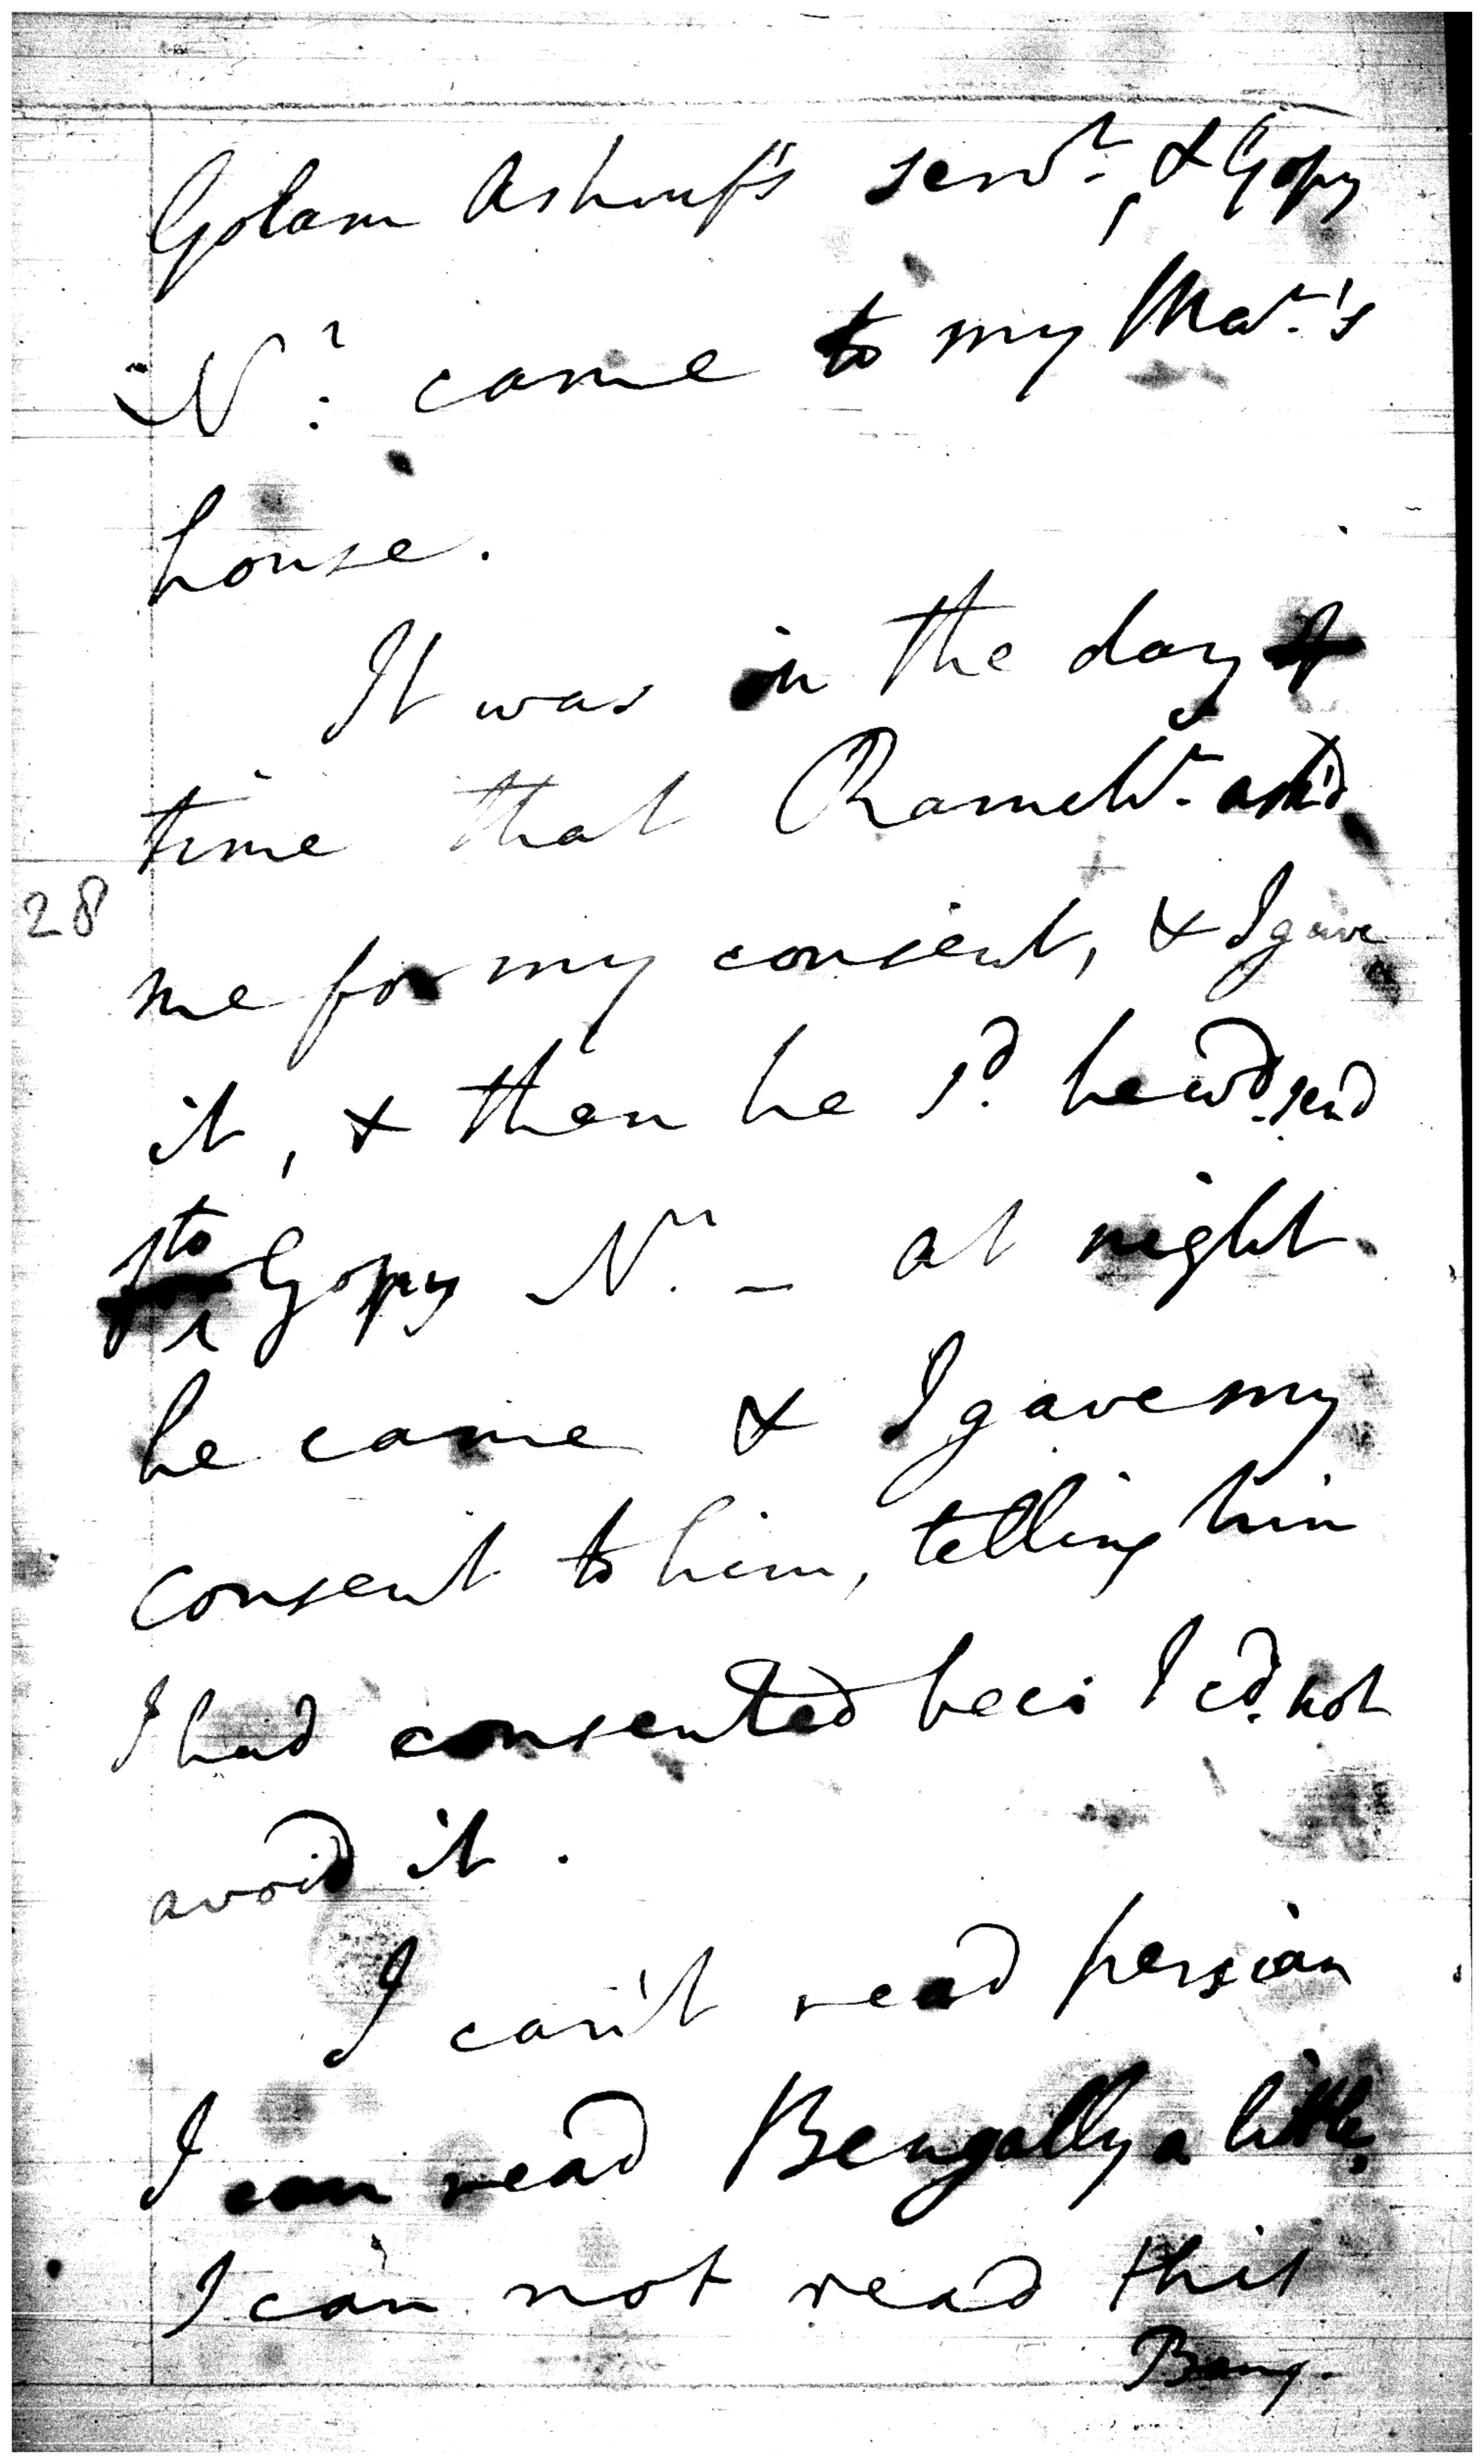 Golam Ashruf's serv.t, & Gopy
N.r came to my Mas.r's
house.
It was in the day
time that Ramch.r ask'd
me for my consent, & I gave
it, & then he s.d he w.d send
to Gopy N.r – at night
he came & I gave my
consent to him, telling him
I had consented I c.d not
avoid it.
I can't read persian
I can read Bengally a little,
28
I can not read this
Beng.